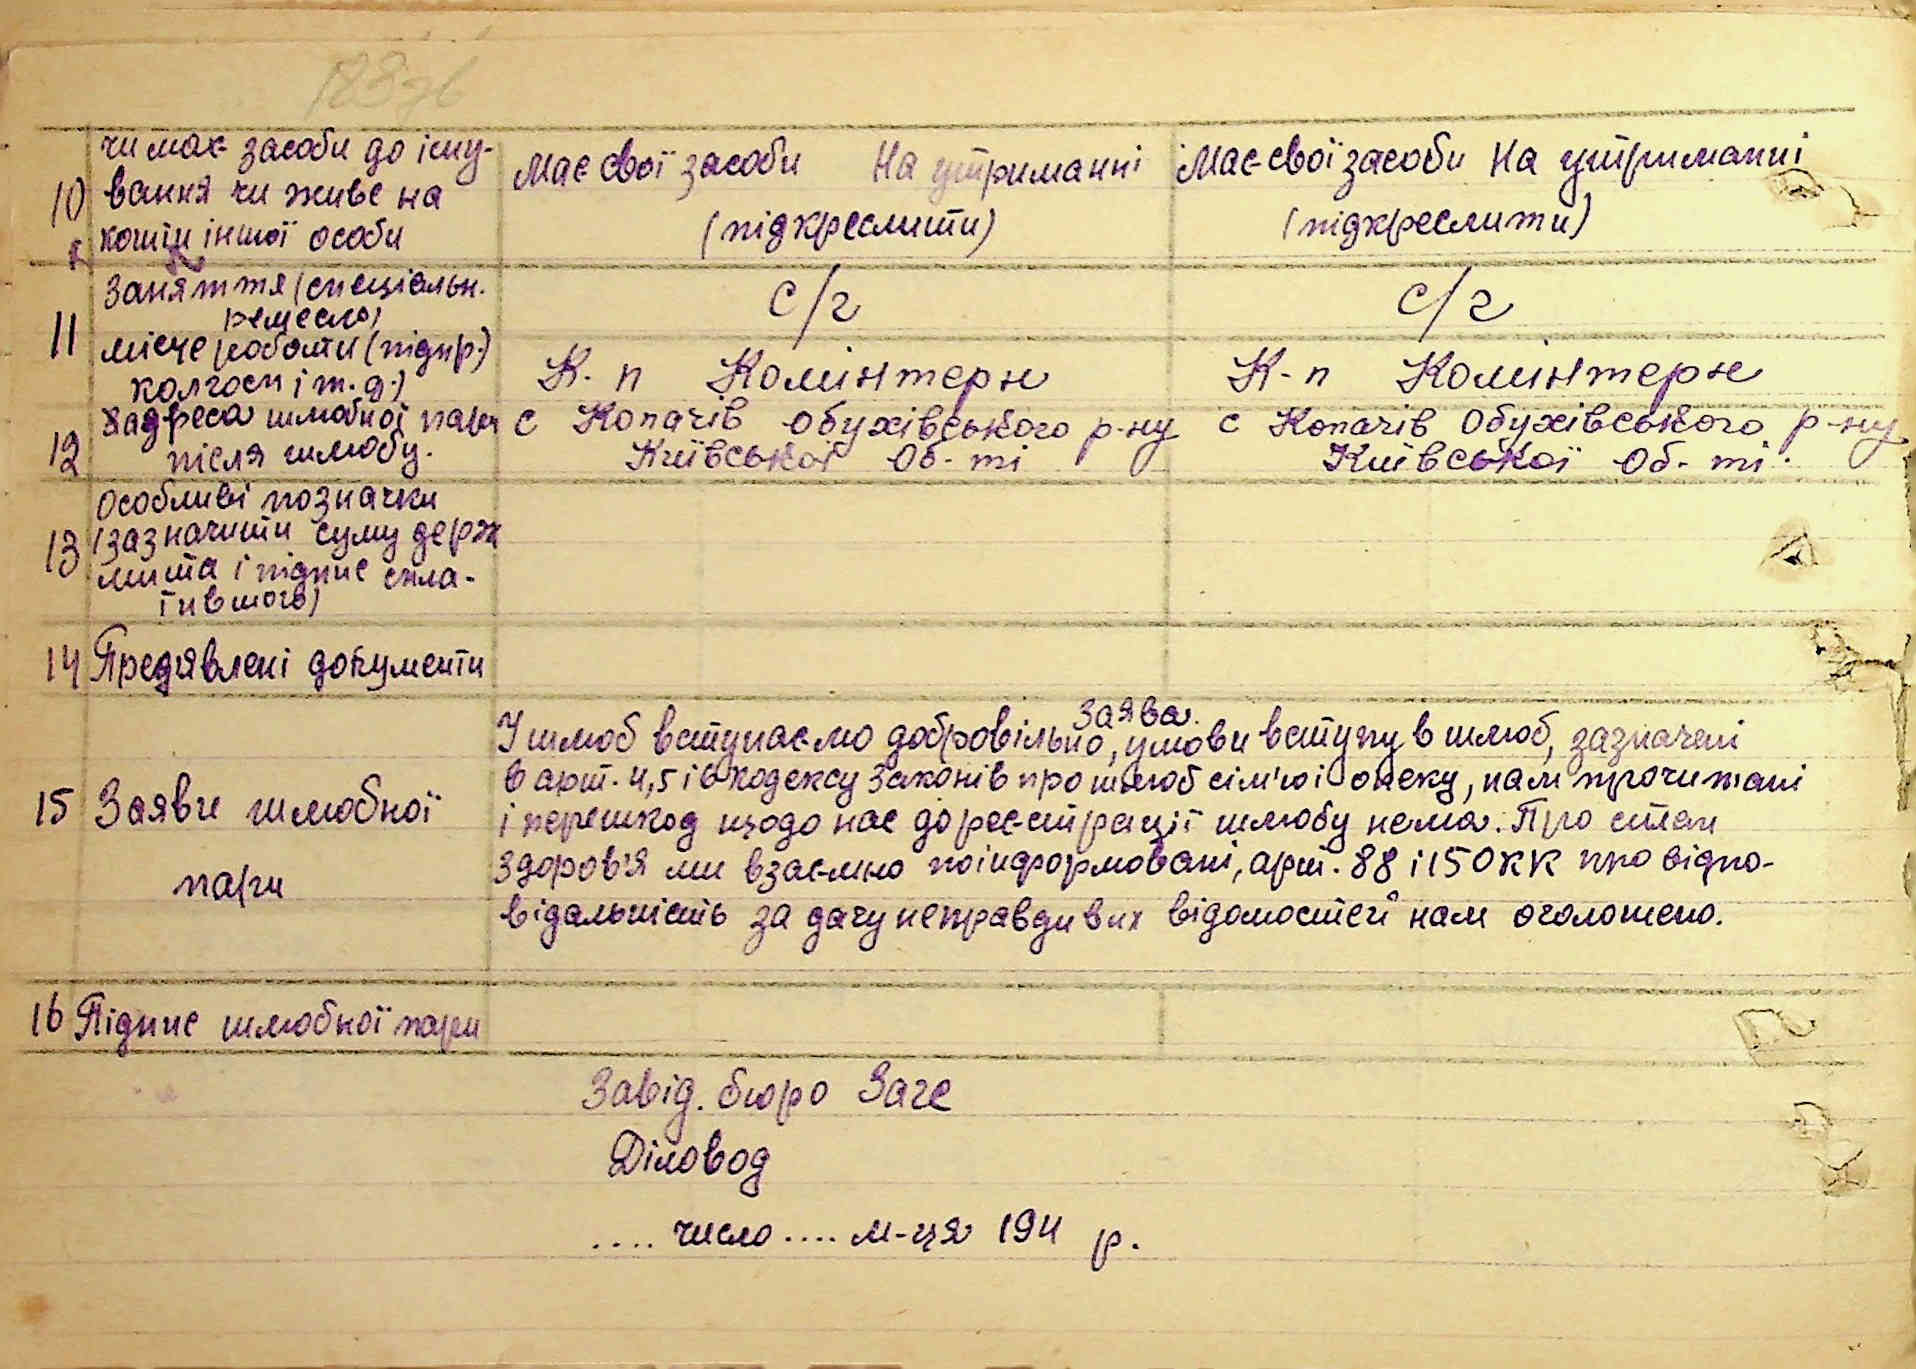 183зв
чи має засоби до існу-
10 вання чи живе на
кошти іншої особи
Має свої засоби На утриманні
(підкреслити)
Має свої засоби На утриманні
(підкреслити)
Заняття (спеціальн.
ремесло)
11 місце роботи (підпр.)
колгосп і т.д.)
с/г
К. п Комінтерн
с/г
К-п Комінтерн
12 адреса шлюбної пари
після шлюбу.
с Копачів Обухівського р-ну
Київської Об-ті
с Копачів Обухівського р-ну
Київської Об-ті.
Особливі позначки
13 (зазначити суму держ
мита і підпис спла-
тившого)
14 Предявлені документи
15 Заяви шлюбної
пари
Заява.
У шлюб вступаємо добровільно, умови вступу в шлюб, зазначені
в арт. 4,5 і 6 кодексу Законів про шлюб сім'ю і опеку, нам прочитані
і перешкод щодо нас до реєстрації шлюбу нема. Про стан
здоров'я ми взаємно поінформовані, арт. 88 і 150 КК про відпо-
відальність за дачу неправдивих відомостей нам оголошено.
16 Підпис шлюбної пари
Завід. бюро Загс
Діловод
.... число .... м-ця 194 р.